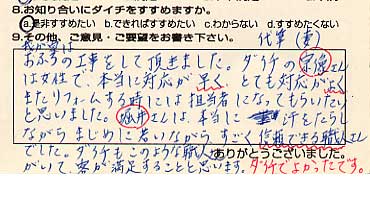 8.お知り合いにダイチをすすめますか。
a.是非すすめたい b.できればすすめたい c.わからない d.すすめたくない
9.その他、ご意見・ご要望をお書き下さい。 代筆(妻)
我が家は
おふろの工事をして頂きました。ダイチの さん
は女性で、本当に対応が早く、とても対応が良く
またリフォームする時には担当者になってもらいたい
と思いました。堀井さんは、本当に 汗をたらし
ながらまじめに若いながら、すごく信頼できる職人さん
でした。ダイチもこのような職人
ありがとうございました。
がいて、客が満足することと思います。ダイチでよかったです。